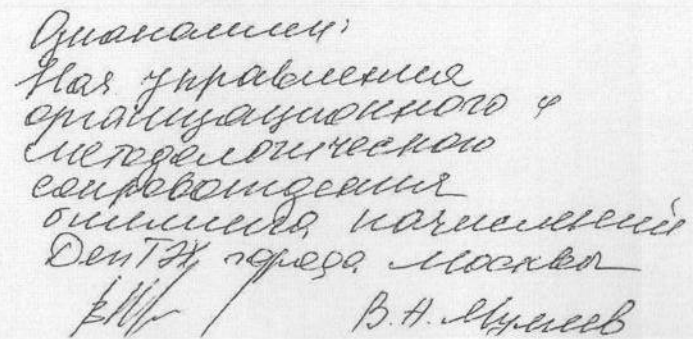 Ознакомлен:
Нач управления
организационного и
методологического
сопровождения
начислений
города Москвы
В.Н.